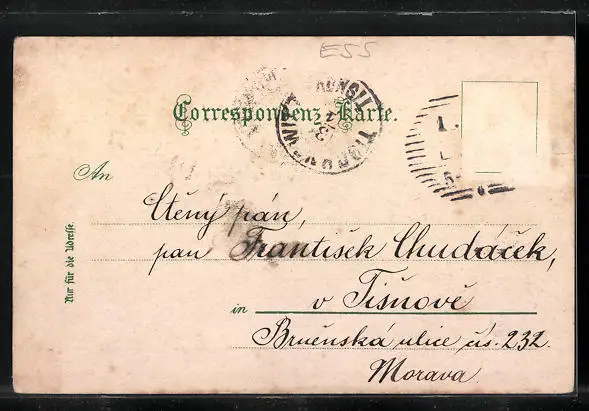 ESS
Correspondenz-Karte.
An
Ctěný pán,
pan František Chudáček,
v Tišnově
in
Brněnská ulice čís. 232.
Morava.
Nur für die Adresse.